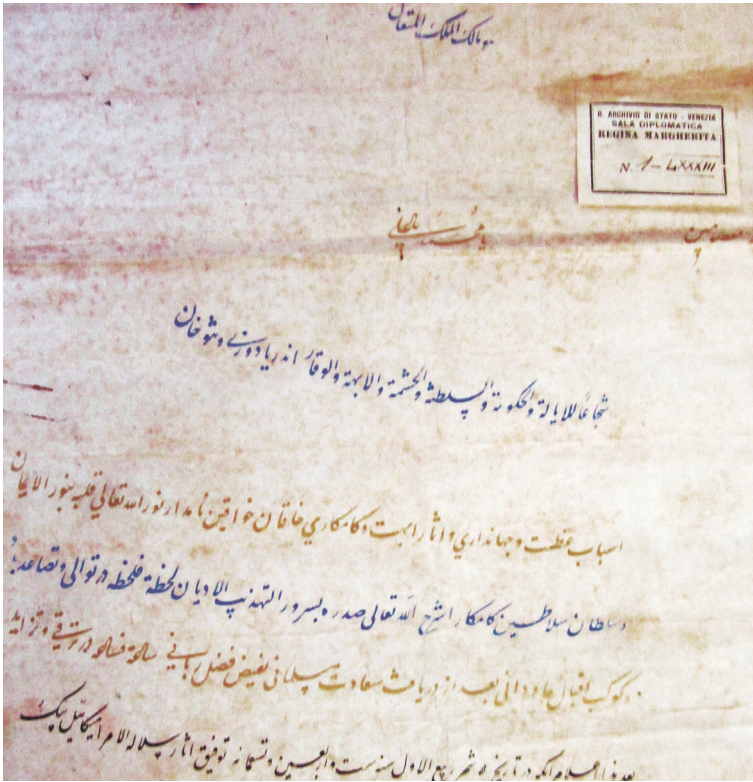 مالک الملک المتعال
R. ARCHIVIO DI STATO - VENEZIA
SALA DIPLOMATICA
REGINA MARGHERITA
N. 1-LXXXIII
شجاعا للایالة والحکومة والسلطنة والحشمة والابهة والوقار اندریا دوزی ونتوخان
اسباب عظمت وجهانداری واثار ابهت وکامکاری خاقان خواقین نامدار نور الله تعالی قلبه بنور الایمان
وسلطان سلاطین کامکار اشرح الله تعالی صدره بسرور التهذیب الادیان لحظة فلحظه در توالی وتصاعد
کوکب اقبال جاودانی بعد از دریافت سعادت مسلمانی بفیض فضل ربانی ساعة فساعه در ترقی وتزاید
اعلام انکه در تاریخ شهر ربیع الاول سنه ست واربعین وتسعمائه توفیق اثار سلالة الامرا میکائیل بیک